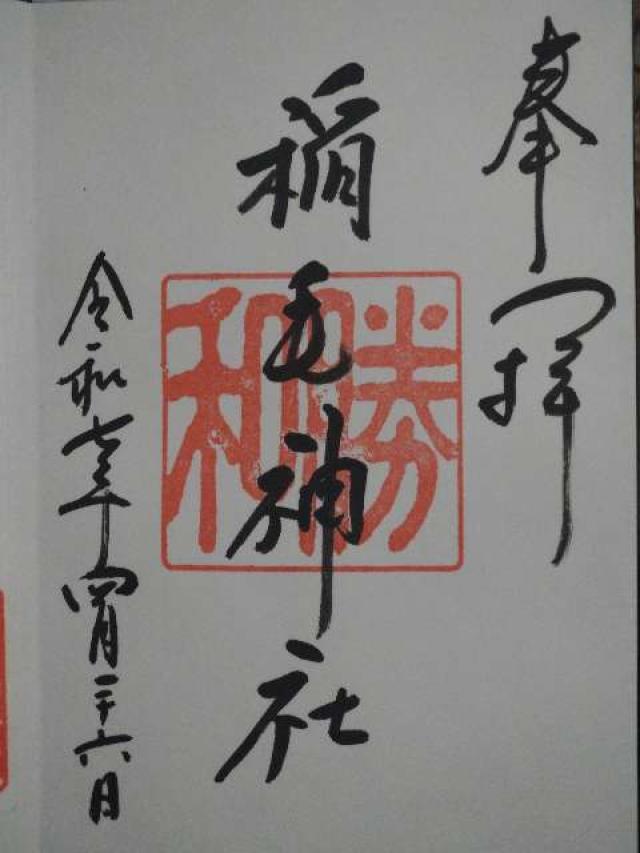 奉拝
稲毛神社
勝和
令和七年四月二十六日